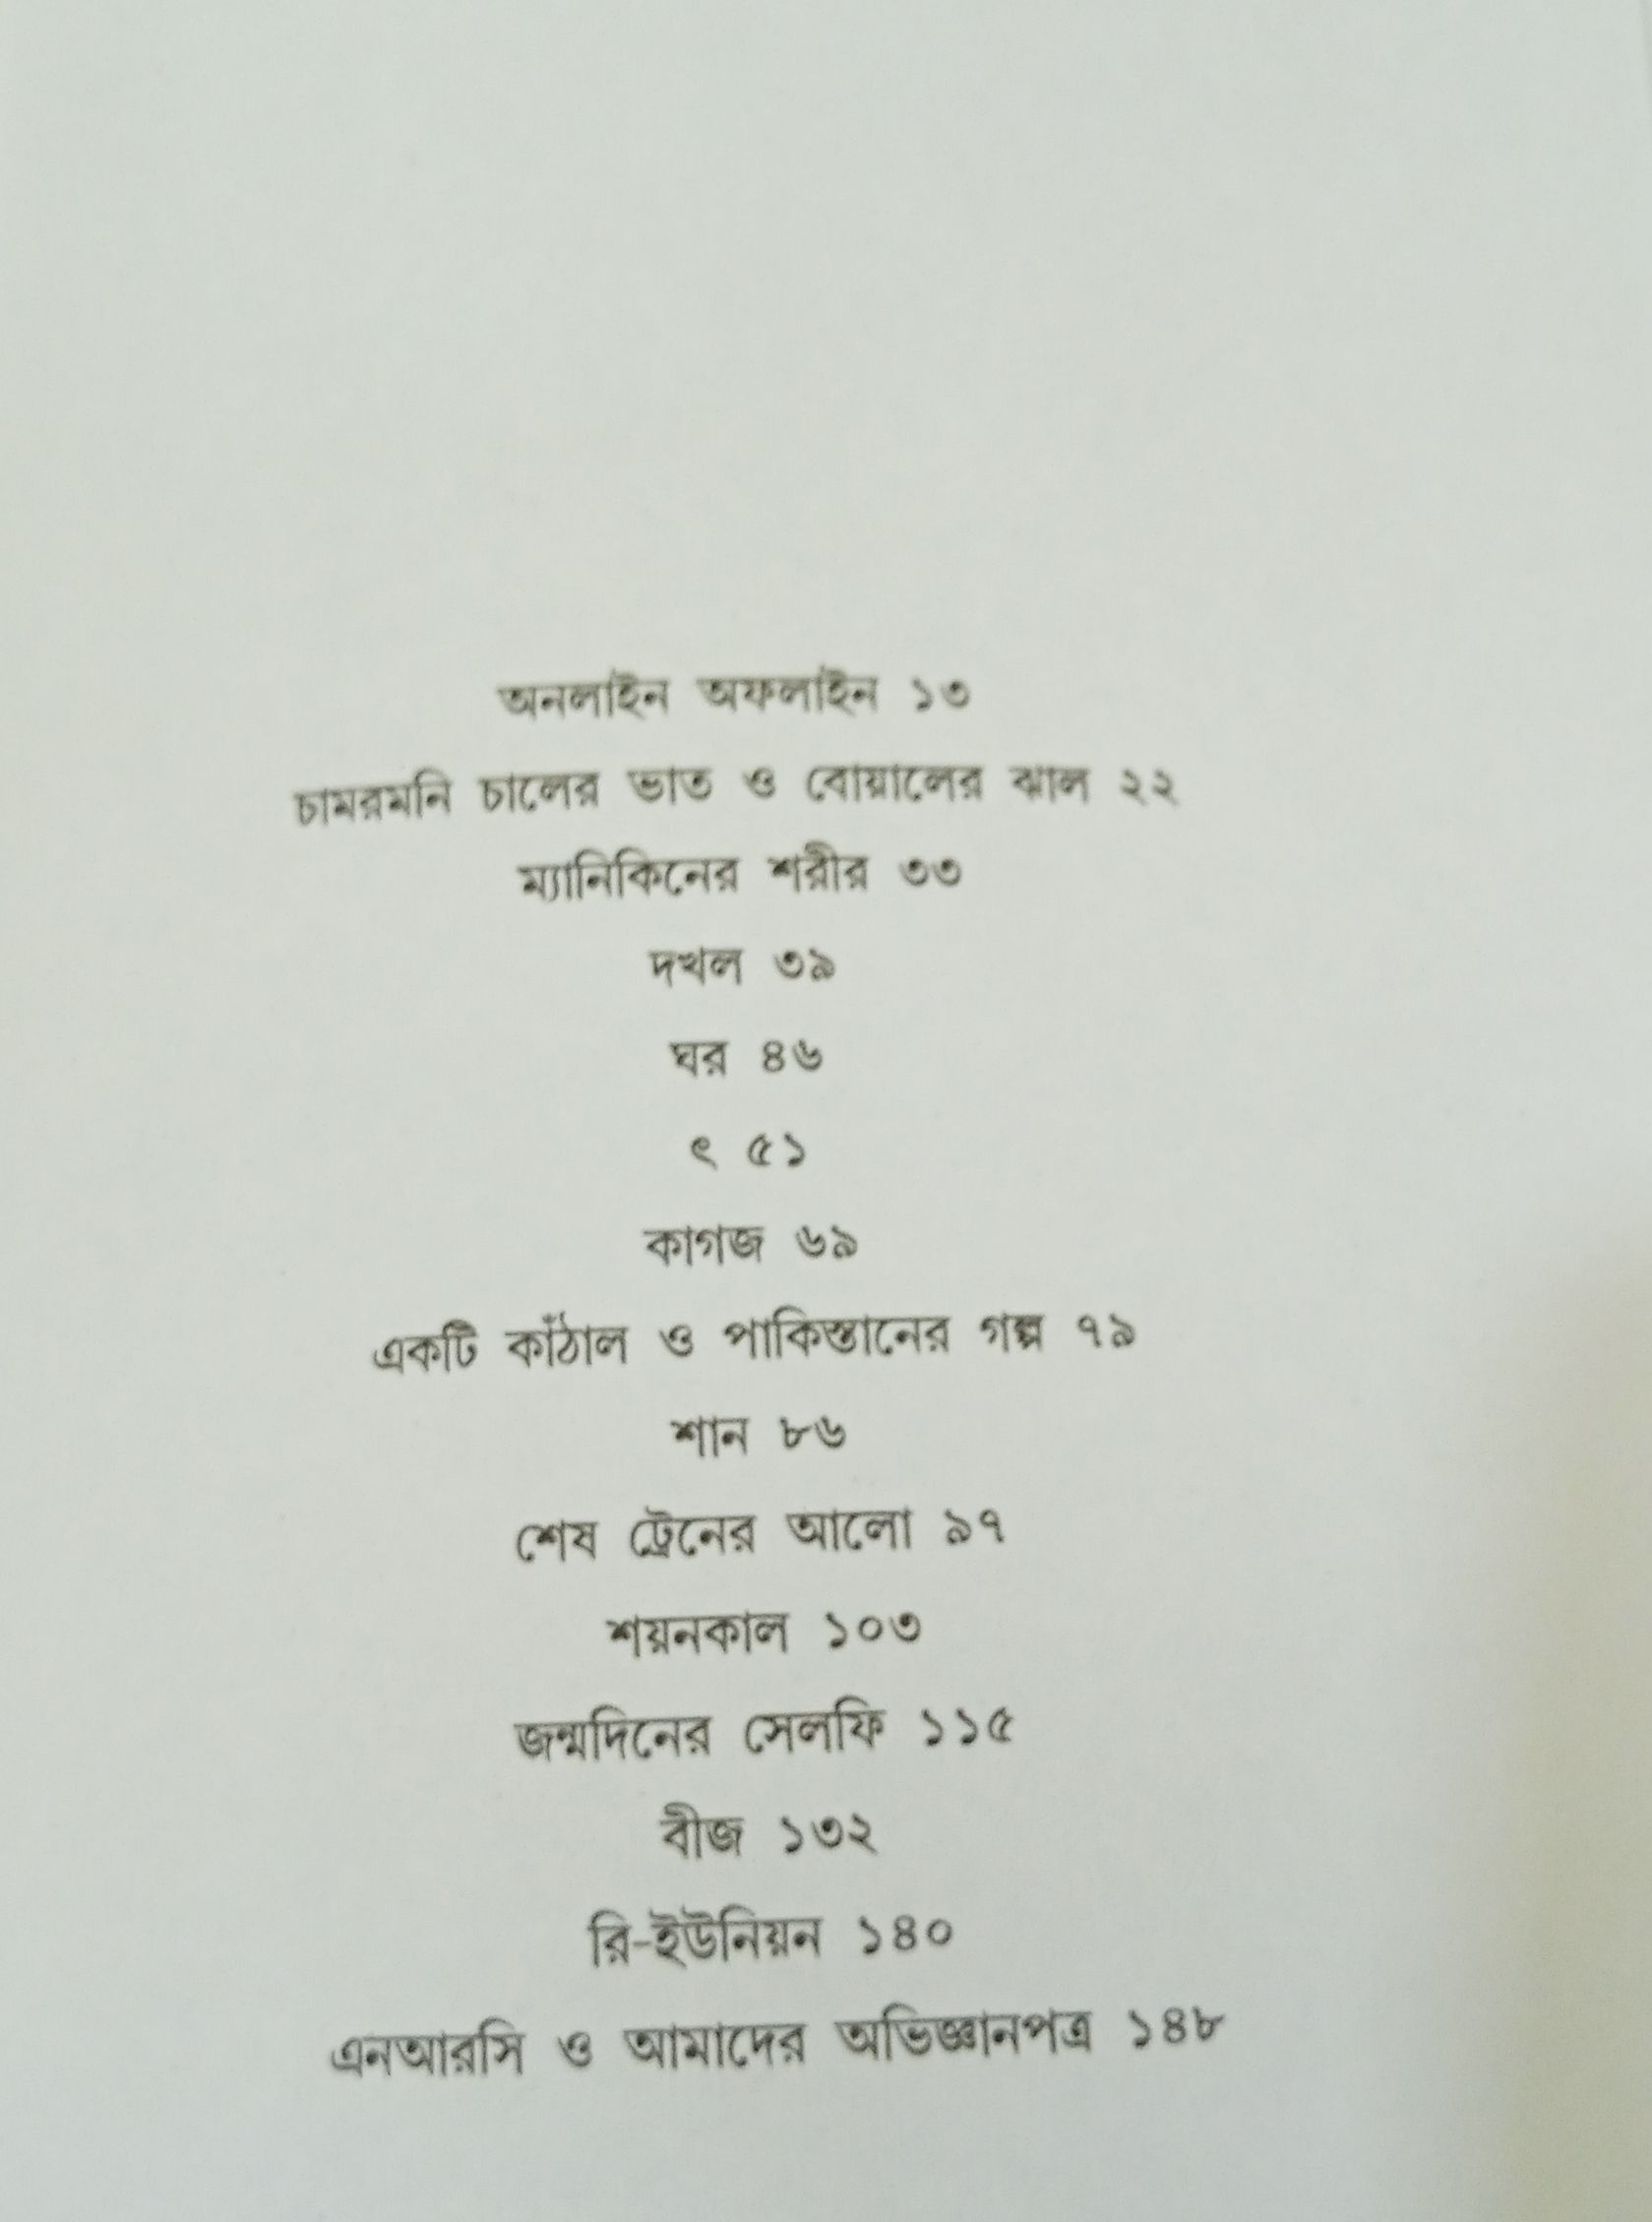 অনলাইন অফলাইন ১৩
চামরমনি চালের ভাত ও বোয়ালের ঝাল ২২
ম্যানিকিনের শরীর ৩৩
দখল ৩৯
ঘর ৪৬
ৎ ৫১
কাগজ ৬৯
একটি কাঁঠাল ও পাকিস্তানের গল্প ৭৯
শান ৮৬
শেষ ট্রেনের আলো ৯৭
শয়নকাল ১০৩
জন্মদিনের সেলফি ১১৫
বীজ ১৩২
রি-ইউনিয়ন ১৪০
এনআরসি ও আমাদের অভিজ্ঞানপত্র ১৪৮